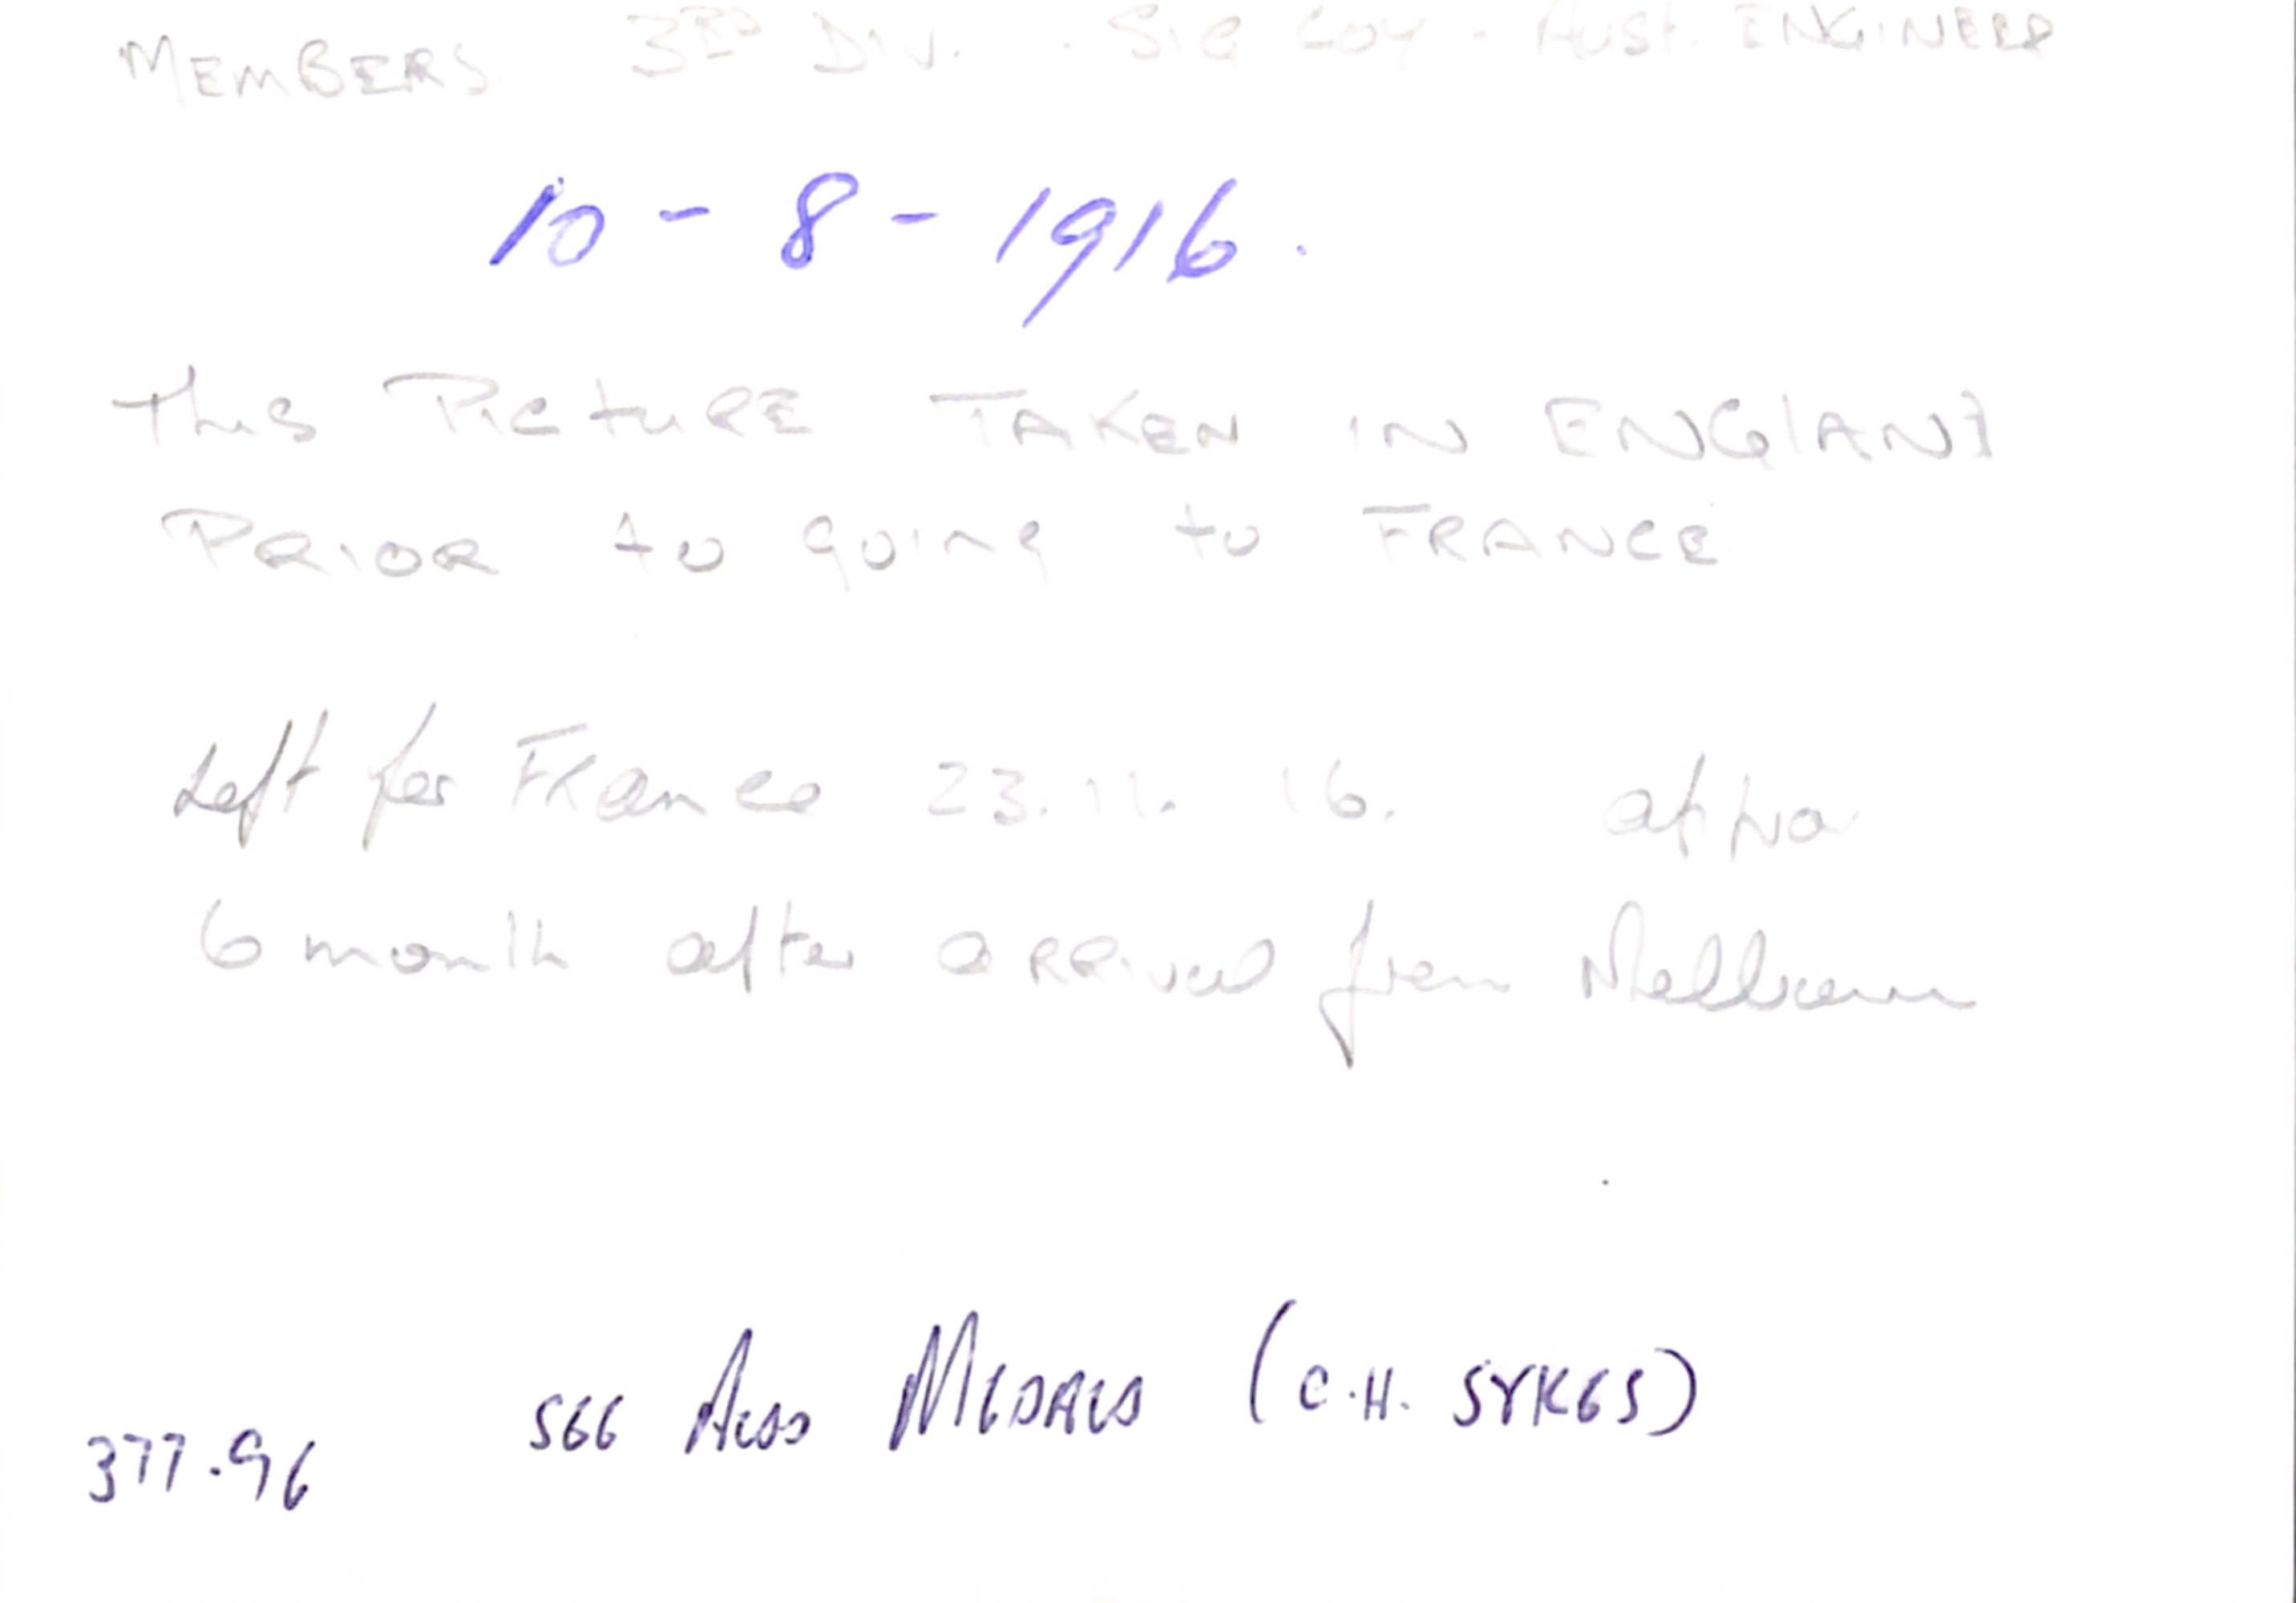 MEMBERS 3RD DIV. - SIG COY - AUST. ENGINEERS
10 - 8 - 1916.
This PICtuRE TAKEN IN ENGlAND
PRIOR to going to FRANCE
Left for France 23.11.16. appro
6 month after arrival from Melbourne
SEE ALSO MEDALS (C.H. SYKES)
377.96